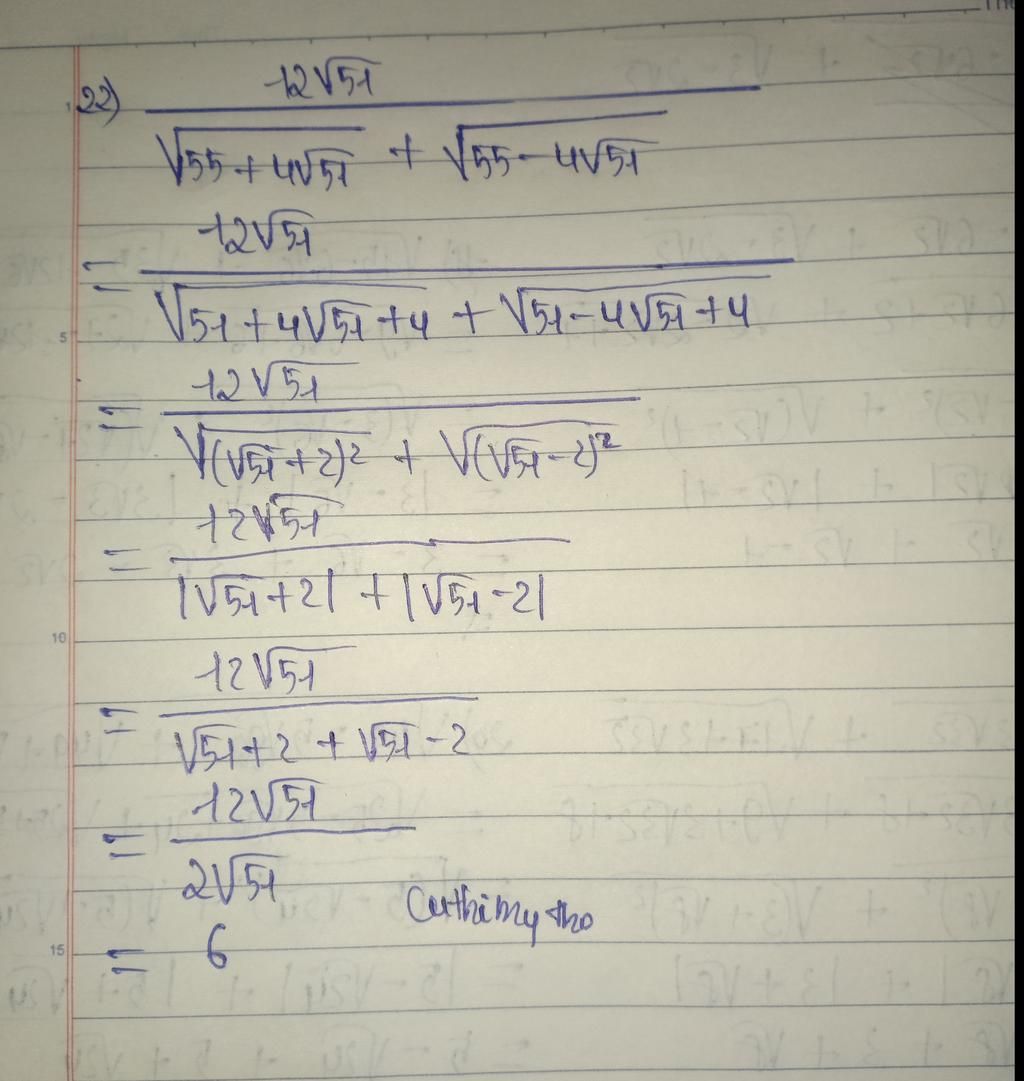 22) 12√51
√55+4√51 + √55-4√51
= 12√51
√51+4√51+4 + √51-4√51+4
= 12√51
√(√51+2)² + √(√51-2)²
= 12√51
|√51+2| + |√51-2|
= 12√51
√51+2 + √51-2
= 12√51
2√51
= 6
5
10
15